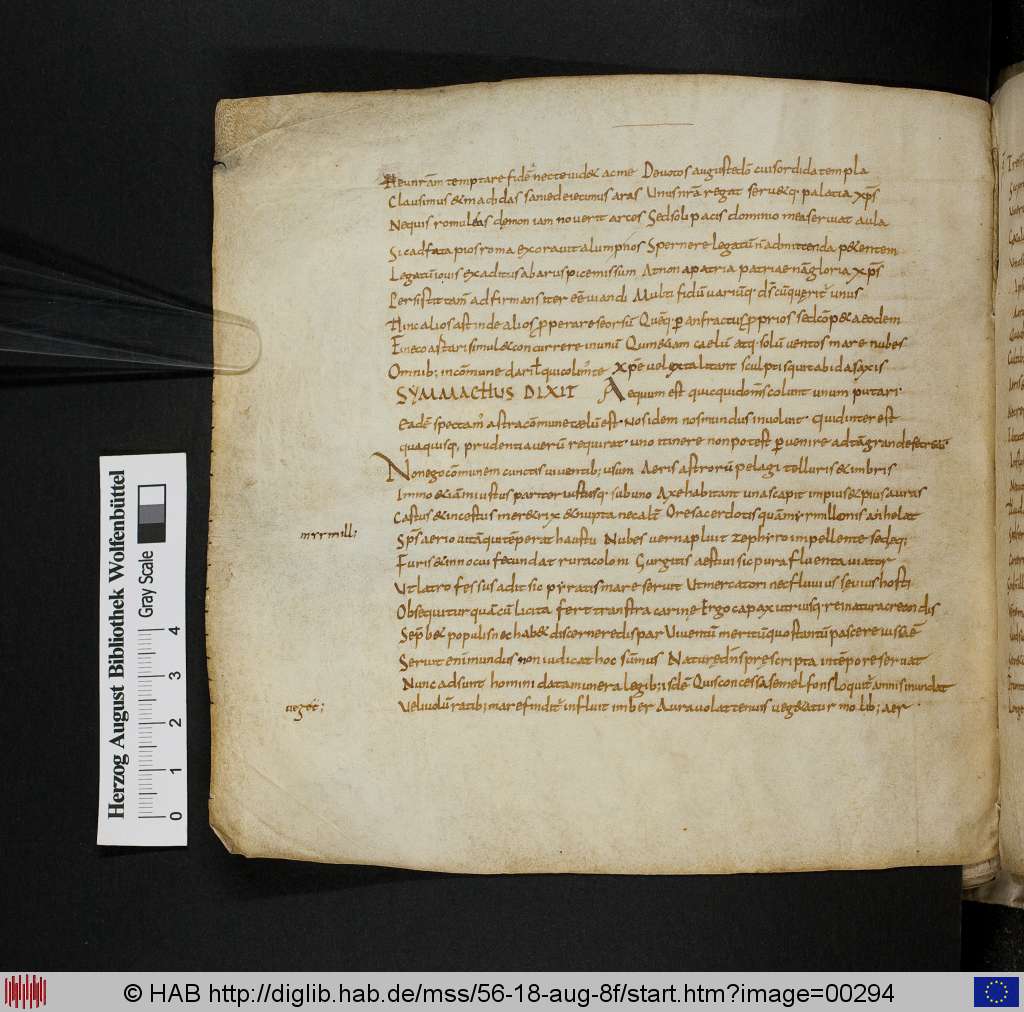 Heu nr̄am temptare fidē necte uidet ac me Deuotos augustedō cui sordida templa
Clausimus & madidas sanie deiecimus aras Unus nr̄a regat seruetq; palatia xp̄s
Nequis romuleas demon iam nouerit arces Sed soli pacis domino mea seruiat aula
Sic adfata pios roma exorauit alumpnos Spernere legatū n̄ admittenda petentem
Legatū iouis ex aditus ab aruspice missum At non a patria patriae nā gloria xp̄s
Persistit tam̄ adfirmans iter eē uiandi Multi fidū uariūq; ds̄ cū querit unus
Hinc alios ast inde alios properare seorsū Quēq; p anfractus proprios sed cōpeta eodem
In
Omnib; in cōmune dari xp̄e uel
SYMMACHUS DIXIT Aequum est quicquid om̄s colunt unum putari·
Eadē spectam' astra cōmune cęlū est· nos idem nos mundus inuoluit· Quid interest
qua quisq; prudentia uerū requirat· uno itinere non potest puenire ad tā grande secretū
Non ego cōmunem cunctis uiuentib; usum Aeris astrorū pelagi telluris & imbris
Immo etiā iniustus pariter iustusq; sub uno Axe habitant unas capit impius & pius auras
Castus & incestus meretrix & nupta nec alit' Ore sacerdotis quā myrmillonis anhelat
myrmill;
Sp̄s aerio uitā qui tēperat haustu Nubes uerna pluit zephyro impellente sed eq;
Furis & innocui fecundat rura coloni Gurgitis aestiui sic pura fluenta uiator
Ut latro fessus adit sic pyratis mare seruit Ut mercatori nec fluuius seuius hosti
Obsequitur quā cū licita fert transtra carine Ergo capax utriusq; rei natura creondis
Sep̄bet populis nec habet discernere dispar Uiuentū meritū quos tantū pascere iussa ē
Seruit enī mundus non iudicat hoc sūmus Naturę dn̄s prescripta in tēpore seruat
Nunc adsunt homini data munera legib; isdē Quis concessa semel fons loquit' amnis inundat
ueget';
Ueliuolū ratib; mare findit' influit imber Aura uolat tenuis uegetatur mobilib; aer·
Herzog August Bibliothek Wolfenbüttel
Gray Scale
0 1 2 3 4
© HAB http://diglib.hab.de/mss/56-18-aug-8f/start.htm?image=00294